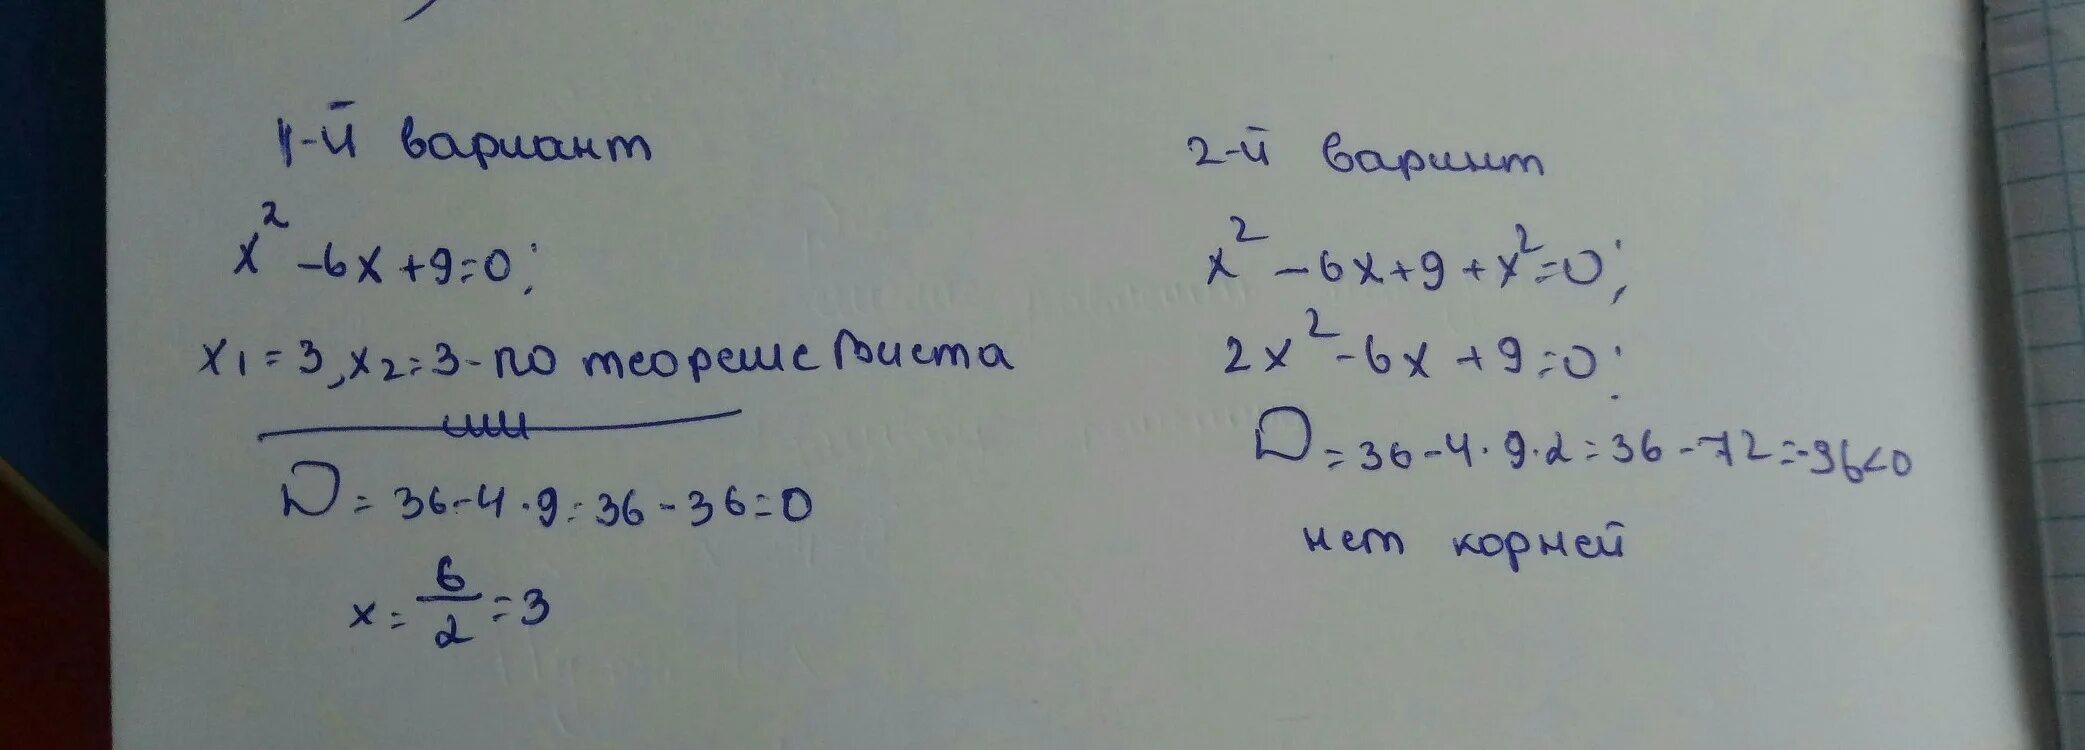 1-й вариант
x² - 6x + 9 = 0;
x1 = 3, x2 = 3 - по теореме Виета
или
D = 36 - 4 · 9 = 36 - 36 = 0
x = 6/2 = 3
2-й варинт
x² - 6x + 9 + x² = 0;
2x² - 6x + 9 = 0;
D = 36 - 4 · 9 · 2 = 36 - 72 = -36 < 0
нет корней